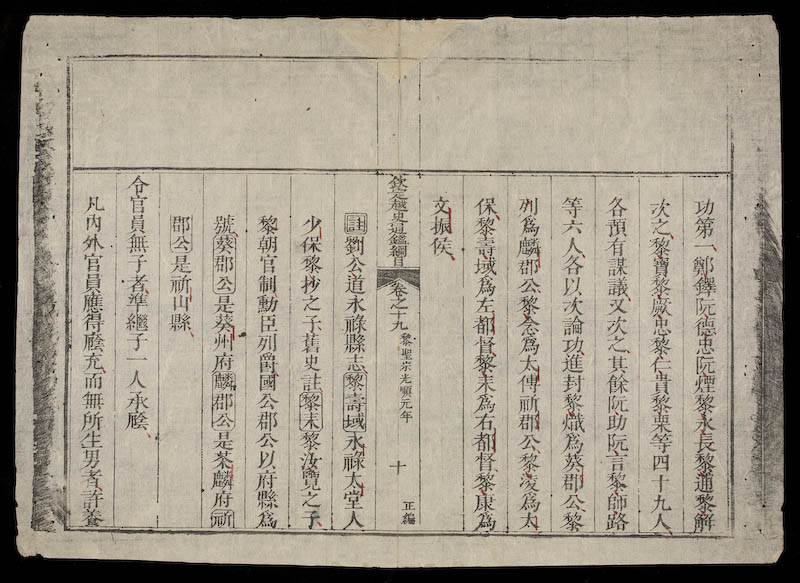 功第一鄭鐸阮德忠阮煙黎永長黎通黎解
次之黎寶黎厰忠黎仁貴黎栗等四十九人
各預有謀議又次之其餘阮助阮言黎師路
等六人各以次論功進封黎熾爲葵郡公黎
列爲麟郡公黎念爲太傅祈郡公黎淩爲太
保黎壽域爲左都督黎耒爲右都督黎康爲
文振侯
欽定越史通鑑綱目 卷之十九 黎聖宗光順元年 十 正編
註劉公道永祿縣志黎壽域永祿太堂人
少保黎抄之子舊史註黎耒黎汝覽之子
黎朝官制勳臣列爵國公郡公以府縣爲
號葵郡公是葵州府麟郡公是茶麟府祈
郡公是祈山縣
令官員無子者準繼子一人承廕
凡內外官員應得廕充而無所生男者許養